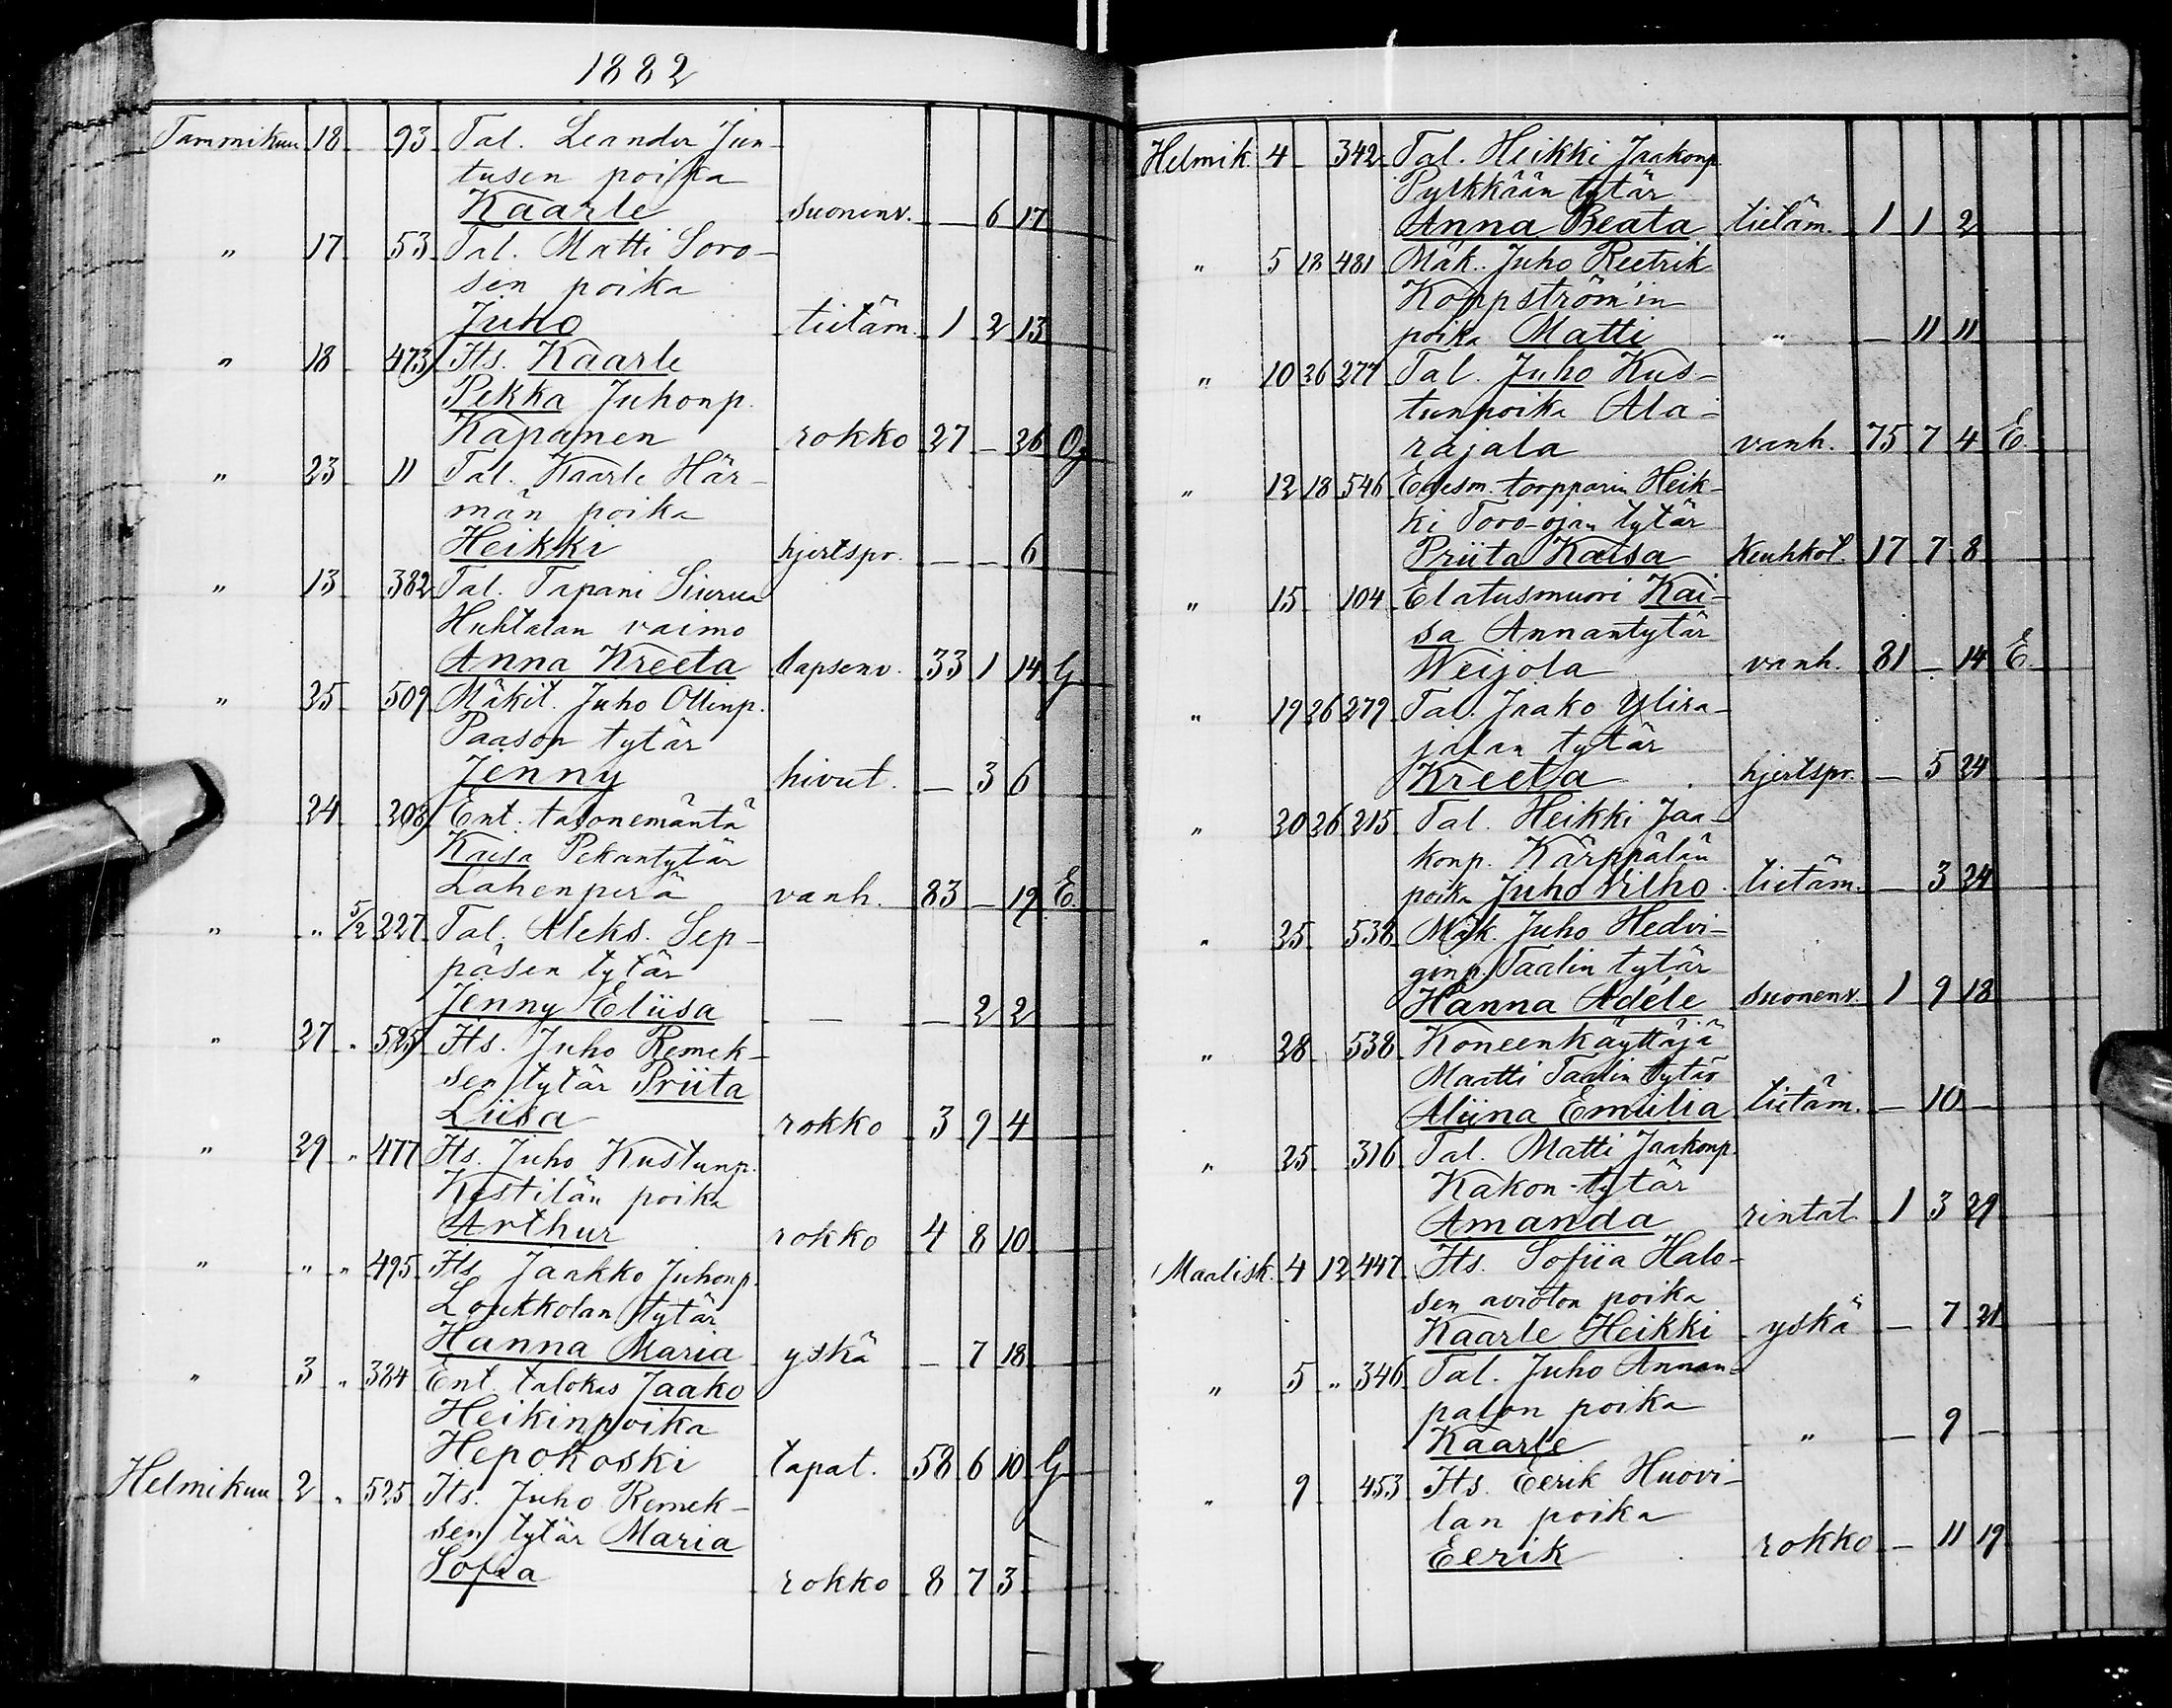 1882
Tammikuu 18 93 Tal. Leander Jun-
tusen poika
Kaarle suonenv. — 6 17
" 17 53 Tal. Matti Soro-
sen poika
Juho tietäm. 1 2 13
" 18 473 Its. Kaarle
Pekka Juhonp.
Kapanen rokko 27 — 26
" 23 11 Tal. Kaarle Här-
män poika
Heikki hjertspr. — — 6
" 13 382 Tal. Tapani Siurua
Huhtalan vaimo
Anna Kreeta lapsenv. 33 1 14 G
" 25 509 Mäkit. Juho Ollinp.
Paason tytär
Jenny hivut. — 3 6
24 208 Ent. talonemäntä
Kaisa Pekantytär
Lahenperä vanh. 83 — 19 E.
" " 5/2 227 Tal. Aleks. Sep-
päsen tytär
Jenny Eliisa — — 2 2
" 27 " 525 Its. Juho Remek-
sen tytär Priita
Liisa rokko 3 9 4
" 29 " 477 Its. Juho Kustunp.
Kestilän poika
Arthur rokko 4 8 10
" " " 495 Its. Jaakko Juhonp.
Loukkolan tytär
Hanna Maria yskä — 7 18
" 3 " 384 Ent. talokas Jaako
Heikinpoika
Hepokoski tapat. 58 6 10 G
Helmikuu 2 " 525 Its. Juho Remek-
sen tytär Maria
Sofia rokko 8 7 3
Helmik. 4 342 Tal. Heikki Jaakonp.
Pylkkään tytär
Anna Beata tietäm. 1 1 2
" 5 18 481 Mäk. Juho Reetrik
Koppström'in
poika Matti " — 11 11
" 10 26 277 Tal. Juho Kus-
tunpoika Ala-
rajala vanh. 75 7 4 E.
" 12 18 546 Edesm. torpparin Heik-
ki Toro-ojan tytär
Priita Kaisa Keuhkot. 17 7 8
" 15 104 Elatusmuori Kai-
sa Annantytär
Weijola vanh. 81 — 14 E.
" 19 26 279 Tal. Jaako Ylira-
jalan tytär
Kreeta hjertspr. — 5 24
" 20 26 215 Tal. Heikki Jaa-
konp. Kärppälän
poika Juho Vilho tietäm. — 3 24
" 25 538 Mäk. Juho Hedvi-
ginp. Taalin tytär
Hanna Adéle suonenv. 1 9 18
" 28 538 Koneenkäyttäjä
Matti Taalin tytär
Aliina Emilia tietäm. — 10 —
" 25 316 Tal. Matti Jaakonp.
Kakon tytär
Amanda rintat. 1 3 29
Maalisk. 4 12 447 Its. Sofiia Halo-
sen aviotön poika
Kaarle Heikki yskä — 7 21
" 5 " 346 Tal. Juho Annan-
palon poika
Kaarle " — 9 —
" 9 453 Its. Eerik Huovi-
lan poika
Eerik rokko — 11 19